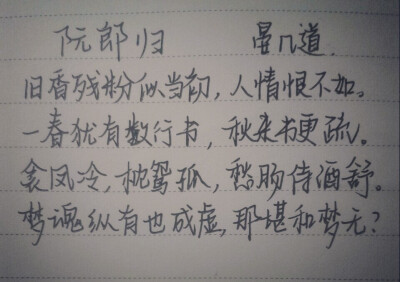 阮郎归 晏几道
旧香残粉似当初，人情恨不如。
一春犹有数行书，秋来书更疏。
衾凤冷，枕鸳孤，愁肠待酒舒。
梦魂纵有也成虚，那堪和梦无？